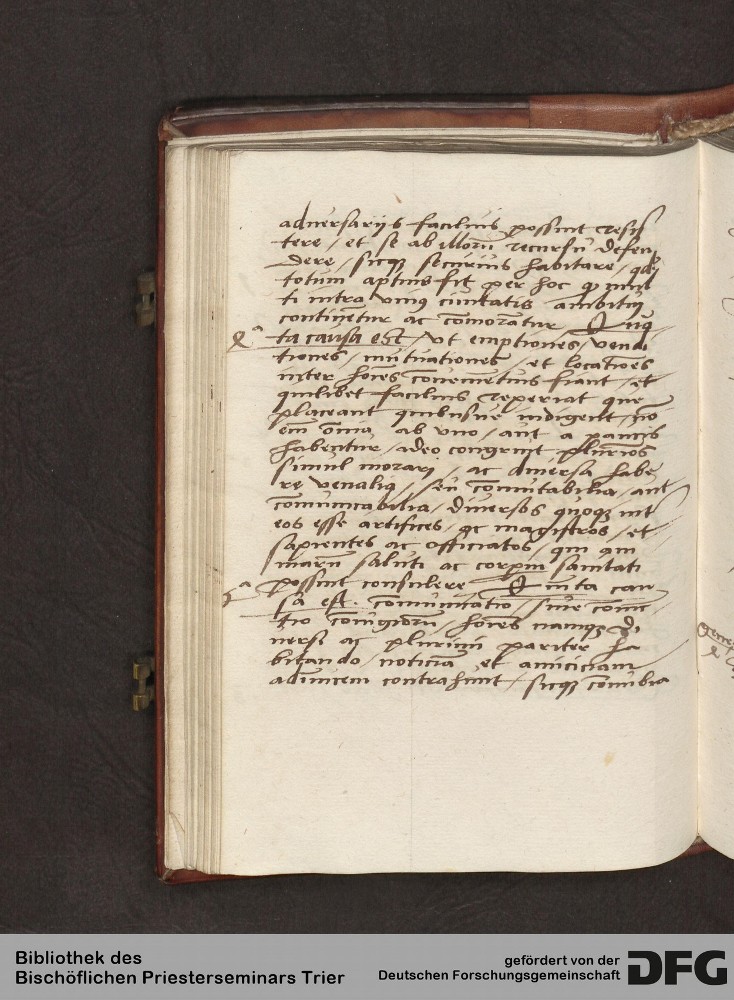 aduersarijs facilius possint resis
tere / et se ab illorū recursu defen
dere / sicq3 securius habitare / qd
totum aptius fit per hoc q mul
ti intra vniq ciuitatis ambitū
continētur ac cōmorātur Quar
4ª ta causa est / vt emptiones / vendi
tiones / mutuationes / et locatiōes
inter hoīes conuenietius fiant / et
quilibet facilius reperiat que
placeant quibusue indigent / nō
em̄ omīa ab vno / aut a paucis
habentur / adeo congruit plurimos
simul morari / ac diuersa habe
re venalia / seu cōmutabilia / aut
cōmunicabilia / diuersos quoq3 int
eos esse artifices / ac magistros / et
sapientes ac officiatos / qui ani
marū saluti ac corpm sanitati
5ª possint consulere Quinta cau
sa est. cōmunicatio / siue
coniugiorū / hoīes namq3 di
uersi ac plurimi pariter ha
bitando / noticiā et amiciciam
adinuicem contrahunt / sicq3 cōnubia
Bibliothek des
Bischöflichen Priesterseminars Trier
gefördert von der
Deutschen Forschungsgemeinschaft
DFG